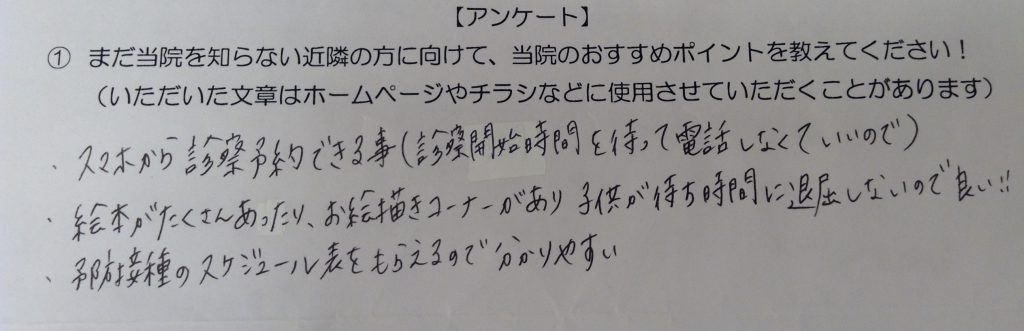 【アンケート】
① まだ当院を知らない近隣の方に向けて、当院のおすすめポイントを教えてください！
（いただいた文章はホームページやチラシなどに使用させていただくことがあります）
・スマホから診察予約できる事（診察開始時間を待って電話しなくていいので）
・絵本がたくさんあったり、お絵描きコーナーがあり子供が待ち時間に退屈しないので良い!!
・予防接種のスケジュール表をもらえるので分かりやすい